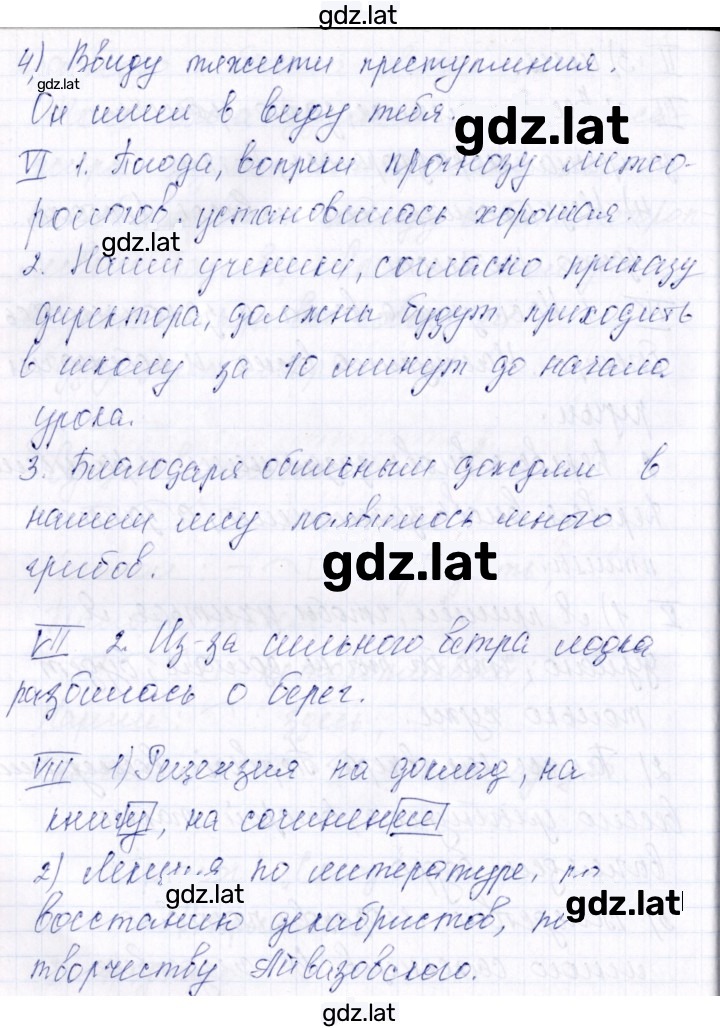 gdz.lat
4) Ввиду тяжести преступления.
gdz.lat
Он имел в виду тебя.
gdz.lat
VI 1. Погода, вопреки прогнозу метео-
рологов. установилась хорошая.
gdz.lat
2. Наши ученики, согласно приказу
директора, должны будут приходить
в школу за 10 минут до начала
урока.
3. Благодаря обильным дождям в
нашем лесу появилось много
грибов.
gdz.lat
VII 2. Из-за сильного ветра лодка
разбилась о берег.
VIII 1) Рецензия на доклад, на
книгу, на сочинение
2) Лекция по литературе, по
gdz.lat
gdz.lat
восстанию декабристов, по
творчеству Айвазовского.
gdz.lat